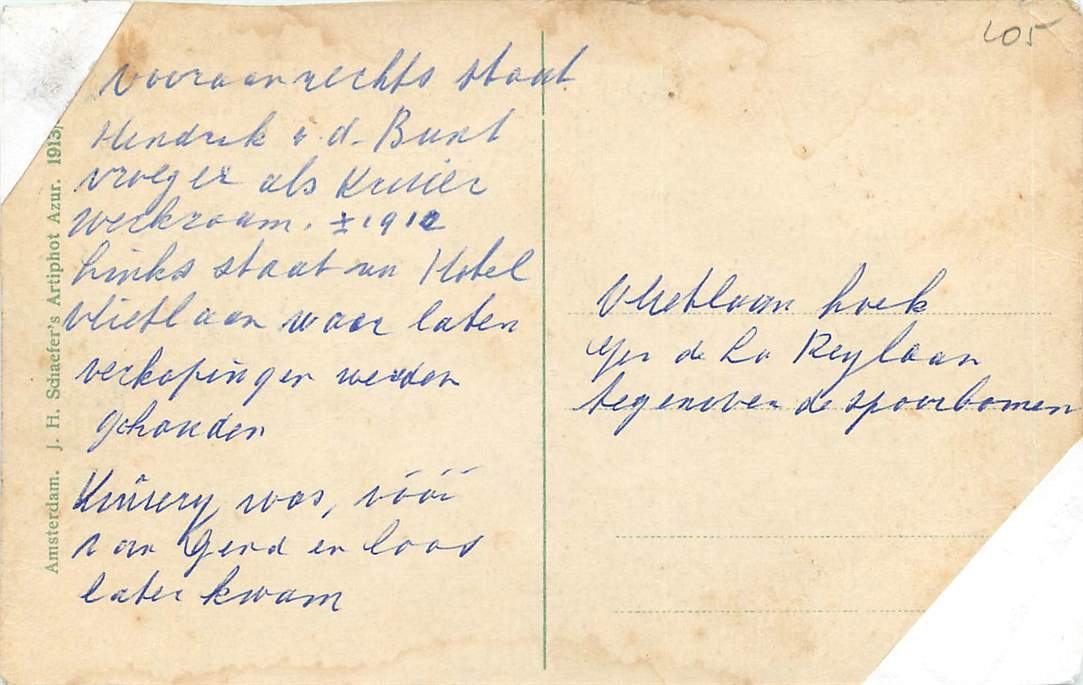 405
vooraan rechts staat
Hendrik v. d. Bunt
vroeger als Kruier
werkzaam. ± 1912
Links staat nu Hotel
Vlietlaan waar laten
verkopingen werden
gehouden
Kruiery was, vóór
van Gend en Loos
later kwam
Vlietlaan hoek
Gen de La Reylaan
tegenover de spoorbomen
Amsterdam. J. H. Schaefer's Artiphot Azur. 1913,